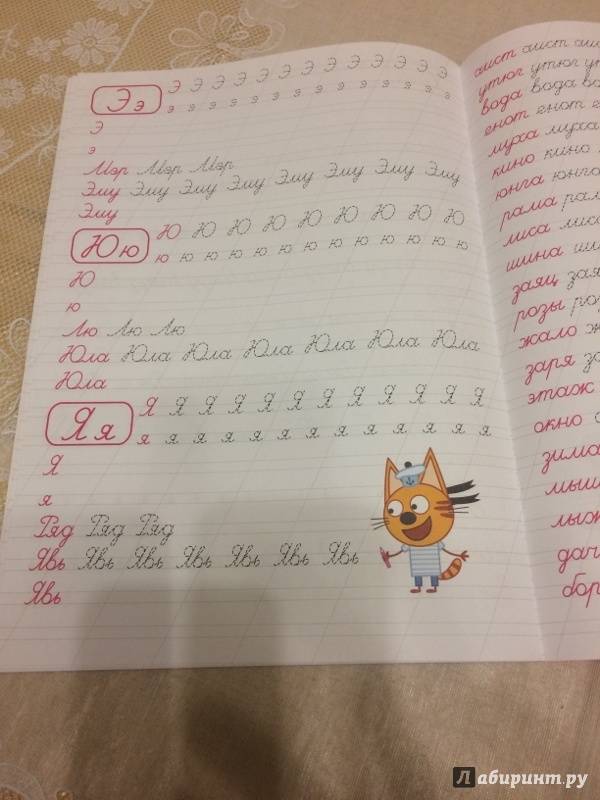 Э э
Э Э Э Э Э Э Э Э Э Э Э Э Э
э э э э э э э э э э э э э э
Э
э
Мэр Мэр Мэр
Эму Эму Эму Эму Эму Эму Эму Эму
Эму
Ю ю
Ю Ю Ю Ю Ю Ю Ю Ю Ю
ю ю ю ю ю ю ю ю ю ю ю ю ю
Ю
ю
Лю Лю Лю
Юла Юла Юла Юла Юла Юла Юла
Юла
Я я
Я Я Я Я Я Я Я Я Я Я Я Я
я я я я я я я я я я я я я
Я
я
Ряд Ряд Ряд
Явь Явь Явь Явь Явь Явь Явь
Явь
аист аист
утюг утюг
вода вода
енот енот
муха муха
кино кино
юнга юнга
рама
лиса
шина
заяц
розы
жало
заря
этаж
окно
зима
лыж
дач
бор
Лабиринт.ру